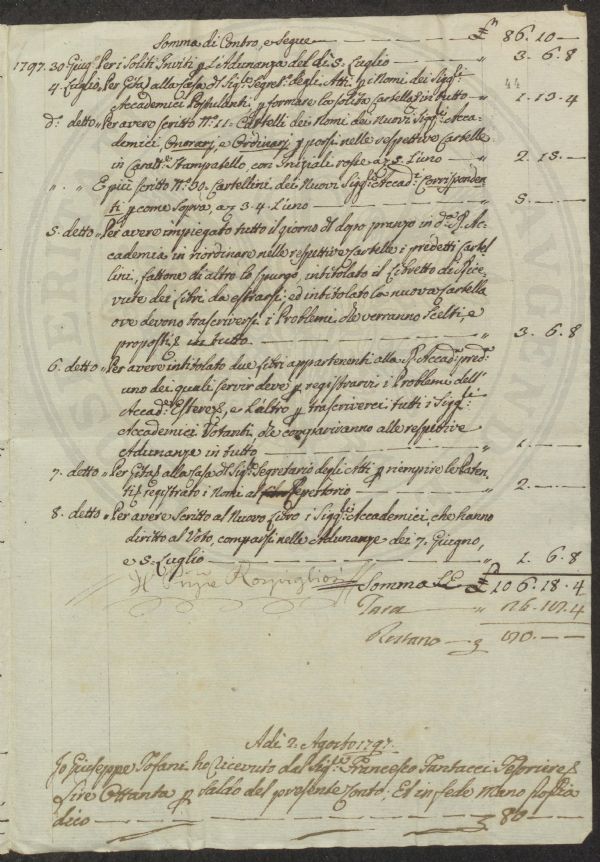 Somma di Contro, e Segue — — — £ 86. 10 —
1797. 30 Giug.º Per i Soliti Inviti p L'Adunanza del dì 5. Luglio — " 3. 6. 8
4. Luglio, Per Gita alla Casa del Sig.r Segret.º degli Atti p i Nomi dei Sigg.ri 44
Accademici Postulanti, p formare la solita Cartella in tutto — " 1. 13. 4
D.º detto " Per avere scritto N.º 11. Cartelli dei Nomi dei Nuovi Sigg.ri Acca-
demici Onorarj, e Ordinarj p porsi nelle respettive Cartelle
in Caratt.e Stampatello, con Iniziali rosse a 5. L'uno — " 2. 15. —
" " E più scritto N.º 30. Cartellini dei Nuovi Sigg.ri Accad.i Corrisponden-
ti p come Sopra, a 3. 4. L'uno — " 5. —
5. detto " Per avere impiegato tutto il giorno di dopo pranzo in d.a R. Ac-
cademia in riordinare nelle respettive Cartelle i predetti Cartel-
lini, fattone di altro lo spurgo, intitolato il Libretto di Rice-
vute dei Libri da estrarsi, ed intitolato la nuova Cartella
ove devono trascriversi i Problemi che verranno scelti, e
proposti in tutto — " 3. 6. 8
6. detto " Per avere intitolato due Libri appartenenti alla R. Accad.a pred.a
uno dei quali servir deve p registrarvi i Problemi dell'
Accad.e Estere, e L'altro p trascriverci tutti i Sigg.ri
Accademici Votanti, che compariranno alle respettive
Adunanze in tutto — " 1. —
7. detto " Per Gita alla Casa del Sig.r Segretario degli Atti p riempire le Paten-
ti, e registrato i Nomi al Repertorio — " 2. —
8. detto " Per avere Scritto al Nuovo Libro i Sigg.ri Accademici, che hanno
diritto al Voto, comparsi nelle Adunanze dei 7. Giugno,
e 5. Luglio — " 1. 6. 8
Rospigliosi Somma £ 106. 18. 4
Tara " 26. 18. 4
Restano — 80. —
Adì 2. Agosto 1797.
Io Giuseppe Tofani ho ricevuto dal Sig.r Francesco Tesoriere
Lire Ottanta p Saldo del presente Conto, Et in fede mano propia
dico — 80 —